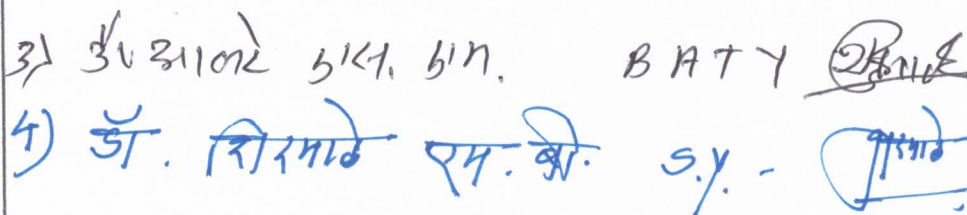 3) डॉ. आलटे एस. एन. BATY
4) डॉ. शिरमाळे एम. बी. S.Y. -